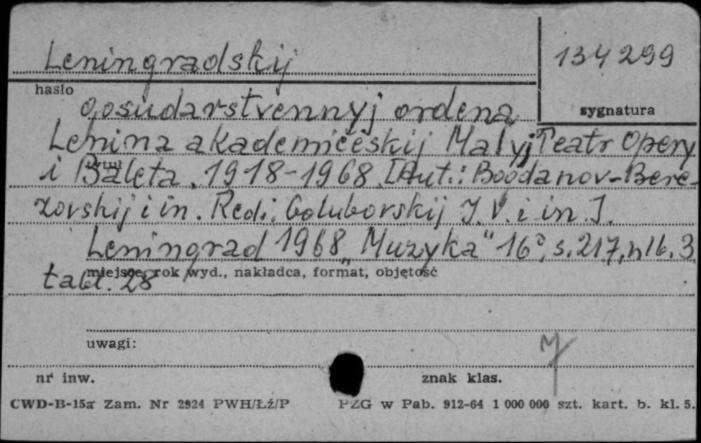 Leningradskij
134299
hasło
gosudarstvennyj ordena
sygnatura
Lenina akademičeskij Malyj Teatr Opery
tytuł
i Baleta. 1918-1968. [Aut.: Bogdanov-Bere-
zovskij i in. Red.: Goluborskij I. V. i in.].
Leningrad 1968 „Muzyka" 16°, s. 217, nlb. 3
miejsce, rok wyd., nakładca, format, objętość
tabl. 28
uwagi:
nr inw.
znak klas.
CWD-B-15a Zam. Nr 2924 PWH/Łź/P
PZG w Pab. 912-64 1 000 000 szt. kart. b. kl. 5.